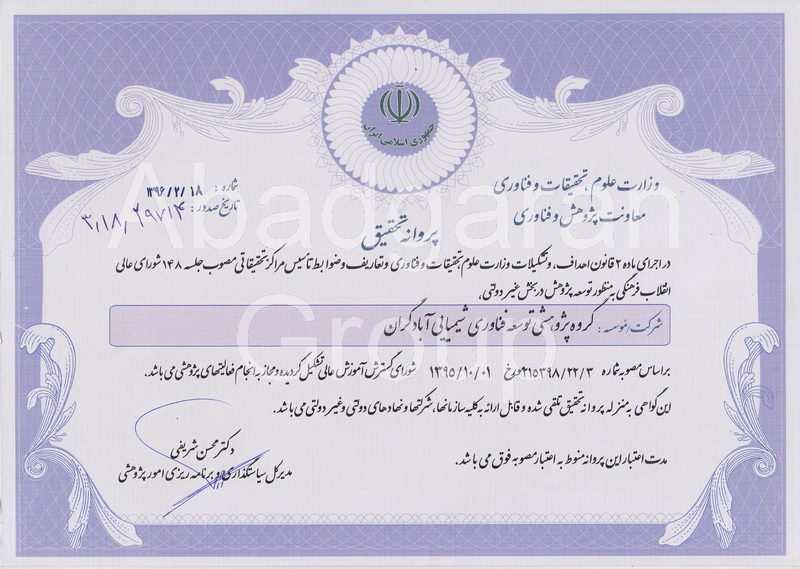 جمهوری اسلامی ایران
وزارت علوم، تحقیقات و فناوری
معاونت پژوهش و فناوری
شماره : ۱۳۹۶/۲/۱۸
تاریخ صدور : ۳٫۱۸٫۲۹۷۱۴
پروانه تحقیق
در اجرای ماده ۲ قانون اهداف، وتشکیلات وزارت علوم، تحقیقات و فناوری وتعاریف وضوابط تأسیس مراکز تحقیقاتی مصوب جلسه ۱۴۸ شورای عالی
انقلاب فرهنگی به منظور توسعه پژوهش در بخش غیر دولتی،
شرکت/موسسه : گروه پژوهشی توسعه فناوری شیمیایی آبادگران
براساس مصوبه شماره ۲۱۵۳۹۸/۲۲/۳ مورخ ۱۳۹۵/۱۰/۰۱ شورای گسترش آموزش عالی تشکیل گردیده و مجاز به انجام فعالیتهای پژوهشی می باشد.
این گواهی به منزله پروانه تحقیق تلقی شده و قابل ارائه به کلیه سازمانها، شرکتها و نهادهای دولتی و غیر دولتی می باشد.
مدت اعتبار این پروانه منوط به اعتبار مصوبه فوق می باشد.
دکتر محسن شریفی
مدیر کل سیاستگذاری و برنامه ریزی امور پژوهشی
Abadgaran
Group